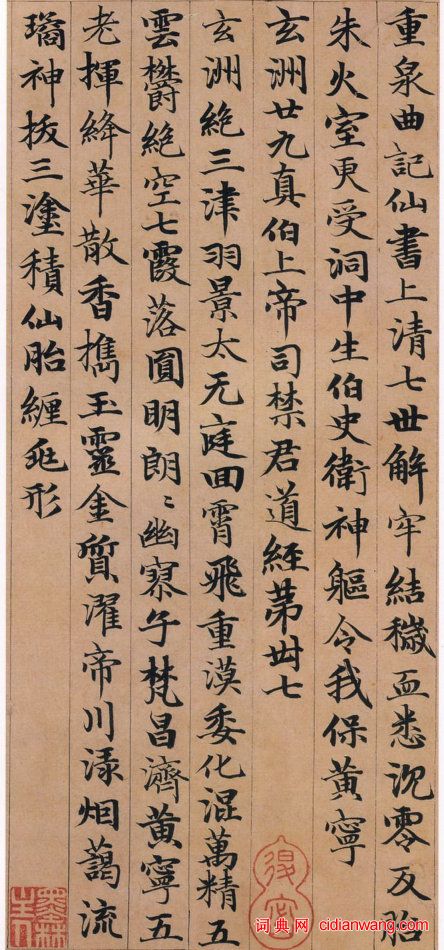 重泉曲記仙書上清七世解牢結穢血悉沉零反胎
朱火室更受洞中生伯史衛神軀令我保黃寧
玄洲廿九真伯上帝司禁君道經第卅七
玄洲絕三津羽景太无庭回霄飛重漠委化混萬精五
雲欝絕空七霞落圓明朗〻幽寥午梵昌濟黃寧五
老揮絳華散香擕玉靈金質濯帝川淥烟藹流
璚神拔三塗積仙胎纏死形
词典网 cidianwang.com